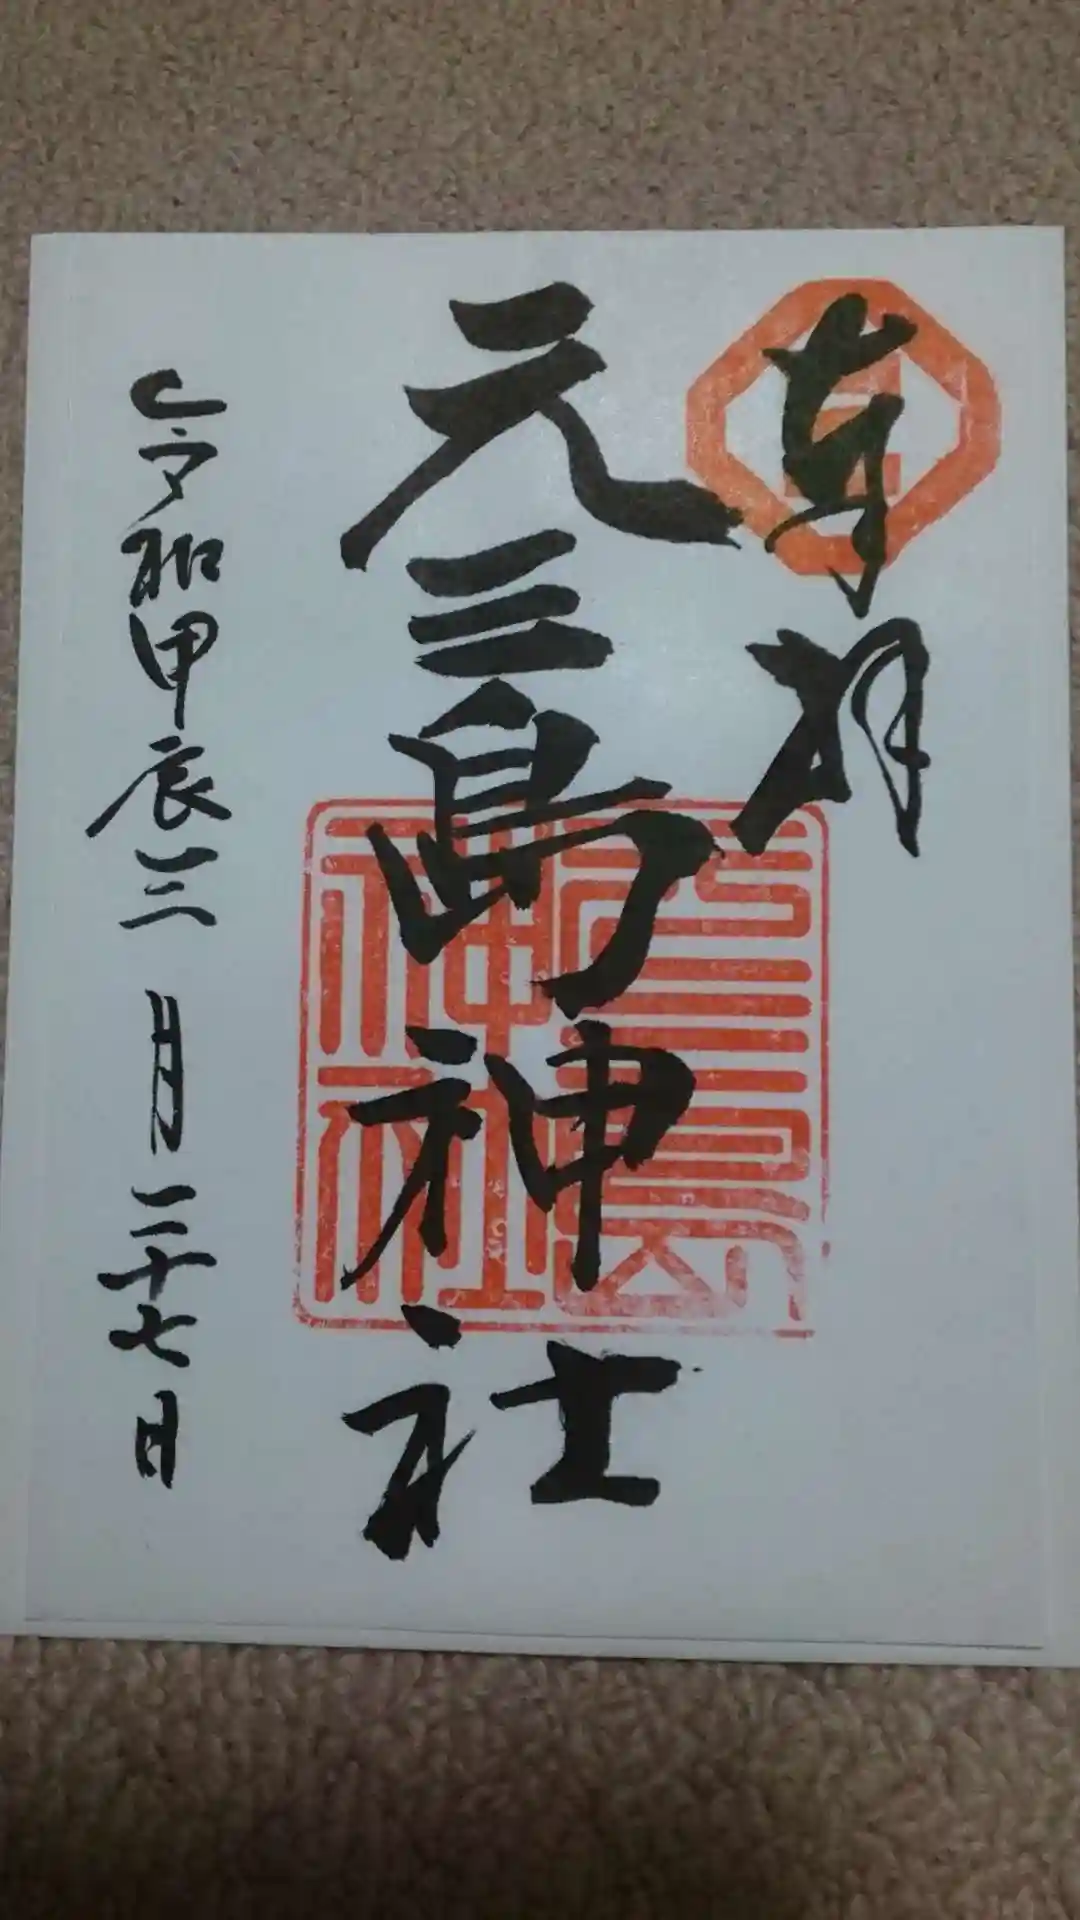 奉拝
元三島神社
三島神社
令和甲辰三月二十七日